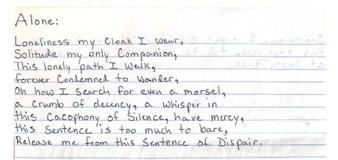 Alone:
Loneliness my Cloak I wear,
Solitude my only Companion,
This lonely path I walk,
forever Condemned to wander,
Oh how I Search for even a morsel,
a Crumb of decency, a whisper in
this Cacophony of Silence, have mercy,
this Sentence is too much to bare,
Release me from this Sentence of Dispair.